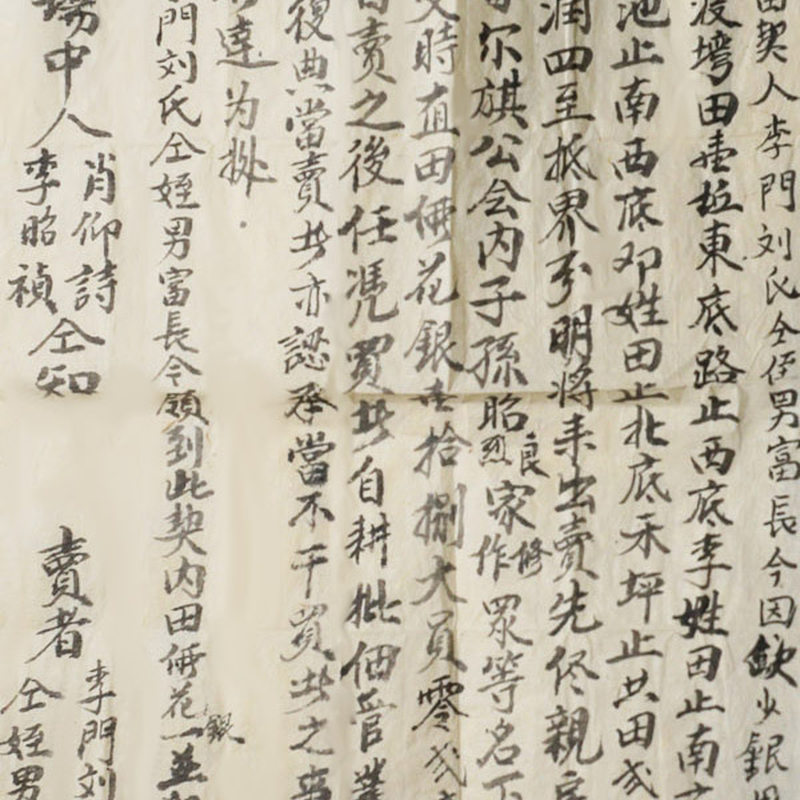 契人李門刘氏仝侄男富長今因缺少銀
塆田壹坵東底路止西底李姓田止南
池止南西底邓姓田止北底禾坪止共田弍
四至抵界分明将来出賣先侭親房
尔旗公会内子孫昭良烈家修作眾等名下
時直田價花銀壹拾捌大員零弍
賣之後任凴買者自耕批佃管業
復典當賣者亦認承當不干買者之事
違为拠
門刘氏仝姪男富長今領到此契内田價花銀一並
場中人
肖仰詩
李昭禎
仝知
賣者
李門刘
仝姪男